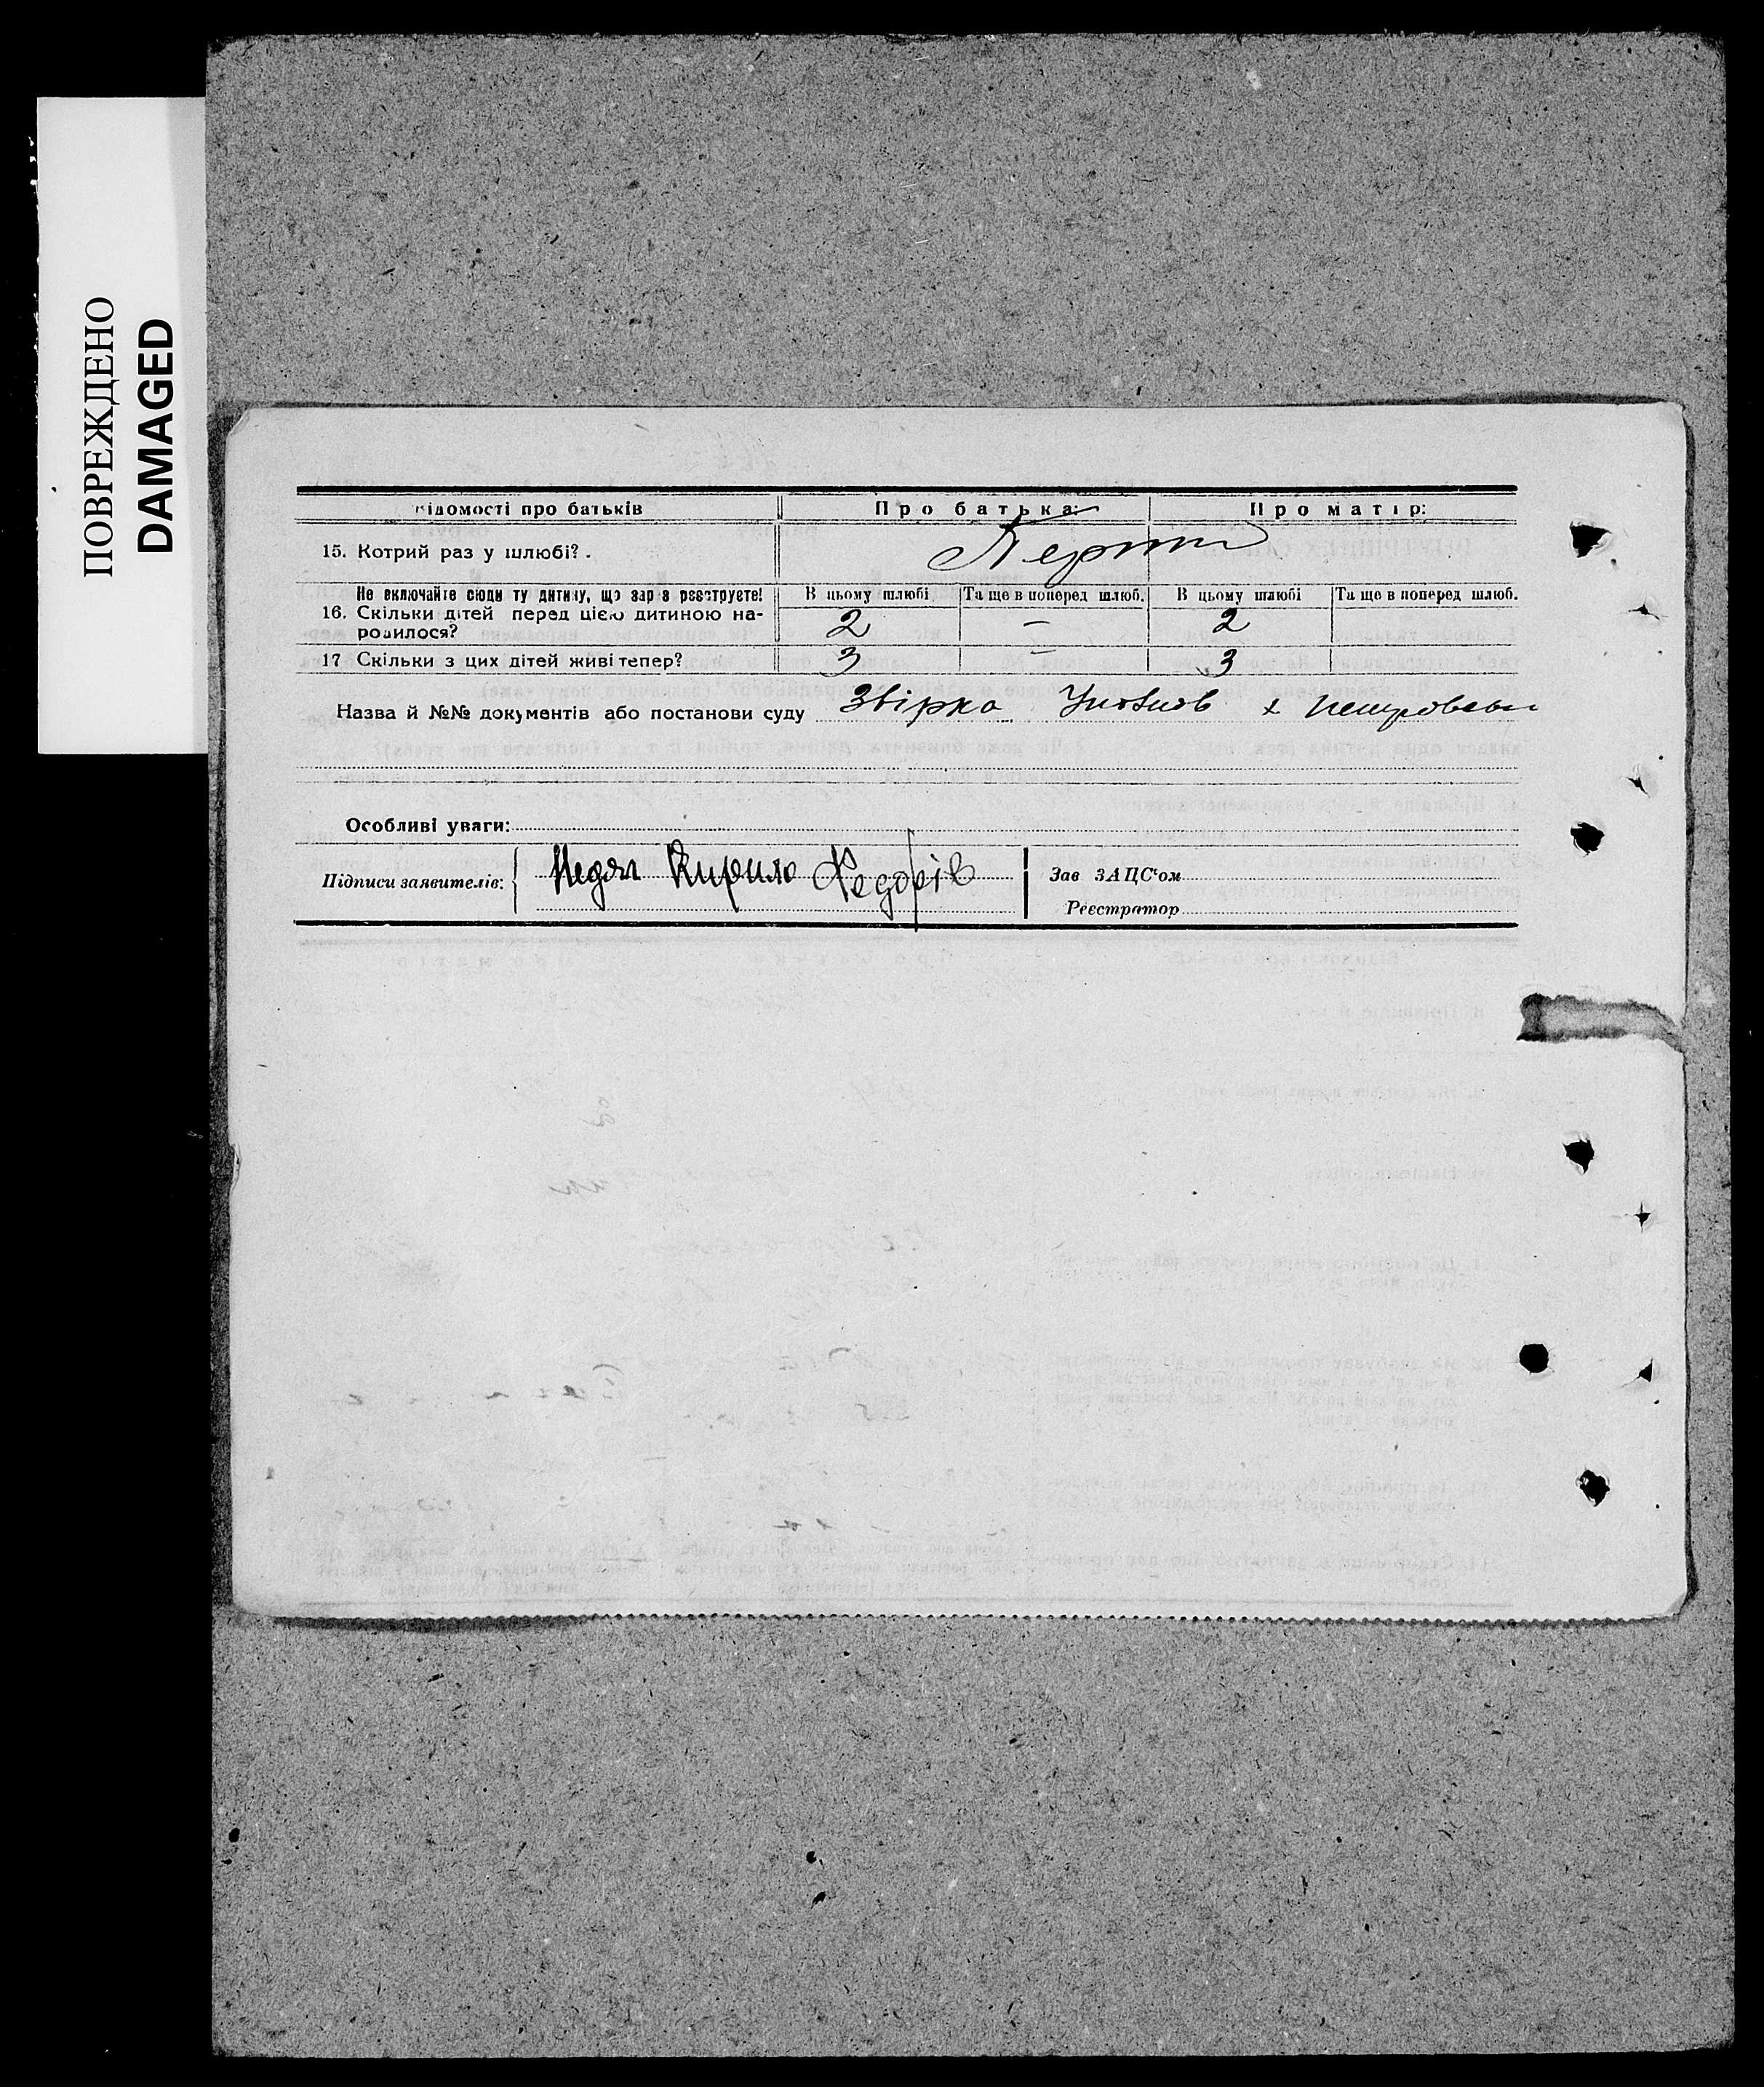 ПОВРЕЖДЕНО
DAMAGED
відомості про батьків Про батька: Про матір:
15. Котрий раз у шлюбі? . Перший
Не включайте сюди ту дитину, що зараз реєструєте! В цьому шлюбі Та ще в поперед шлюб. В цьому шлюбі Та ще в поперед шлюб.
16. Скільки дітей перед цією дитиною на-
родилося? 2 — 2
17 Скільки з цих дітей живі тепер? 3 — 3
Назва й №№ документів або постанови суду Звірка
Особливі уваги:
Підписи заявителів: Недяк Кирило Федорів
Зав ЗАЦС'ом
Реєстратор